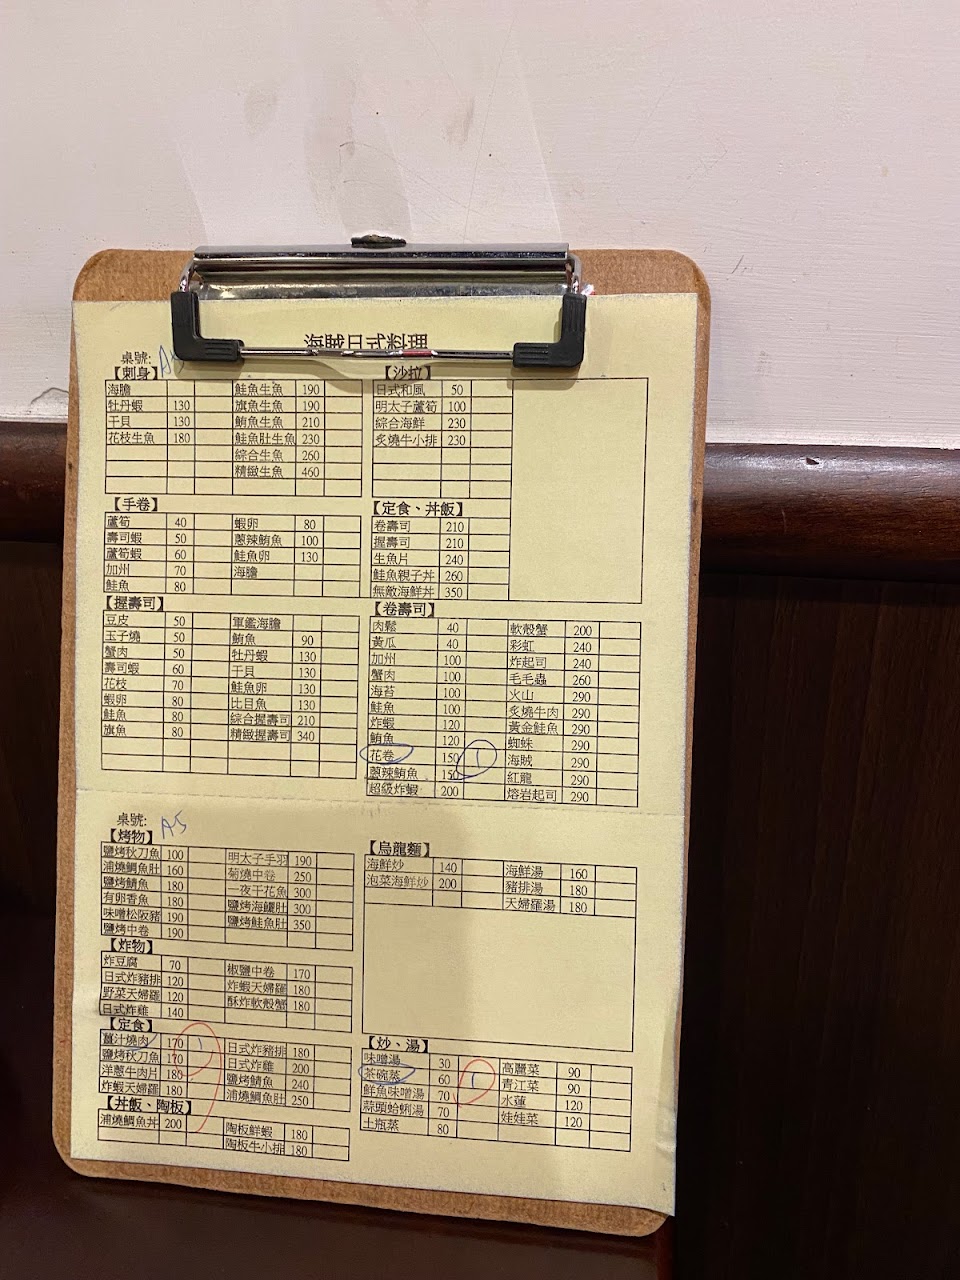 海賊日式料理
桌號: A5
【刺身】
海膽
牡丹蝦 130
干貝 130
花枝生魚 180
鮭魚生魚 190
旗魚生魚 190
鮪魚生魚 210
鮭魚肚生魚 230
綜合生魚 260
精緻生魚 460
【沙拉】
日式和風 50
明太子蘆筍 100
綜合海鮮 230
炙燒牛小排 230
【手卷】
蘆筍 40
壽司蝦 50
蘆筍蝦 60
加州 70
鮭魚 80
蝦卵 80
蔥辣鮪魚 100
鮭魚卵 130
海膽
【定食、丼飯】
卷壽司 210
握壽司 210
生魚片 240
鮭魚親子丼 260
無敵海鮮丼 350
【握壽司】
豆皮 50
玉子燒 50
蟹肉 50
壽司蝦 60
花枝 70
蝦卵 80
鮭魚 80
旗魚 80
軍艦海膽
鮪魚 90
牡丹蝦 130
干貝 130
鮭魚卵 130
比目魚 130
綜合握壽司 210
精緻握壽司 340
【卷壽司】
肉鬆 40
黃瓜 40
加州 100
蟹肉 100
海苔 100
鮭魚 100
炸蝦 120
鮪魚 120
花卷 150 1
蔥辣鮪魚 150
超級炸蝦 200
軟殼蟹 200
彩虹 240
炸起司 240
毛毛蟲 260
火山 290
炙燒牛肉 290
黃金鮭魚 290
蜘蛛 290
海賊 290
紅龍 290
熔岩起司 290
桌號: A5
【烤物】
鹽烤秋刀魚 100
浦燒鯛魚肚 160
鹽烤鯖魚 180
有卵香魚 180
味噌松阪豬 190
鹽烤中卷 190
明太子手羽 190
菊燒中卷 250
一夜干花魚 300
鹽烤海鱺肚 300
鹽烤鮭魚肚 350
【烏龍麵】
海鮮炒 140
泡菜海鮮炒 200
海鮮湯 160
豬排湯 180
天婦羅湯 180
【炸物】
炸豆腐 70
日式炸豬排 120
野菜天婦羅 120
日式炸雞 140
椒鹽中卷 170
炸蝦天婦羅 180
酥炸軟殼蟹 180
【定食】
薑汁燒肉 170 1
鹽烤秋刀魚 170
洋蔥牛肉片 180
炸蝦天婦羅 180
日式炸豬排 180
日式炸雞 200
鹽烤鯖魚 240
浦燒鯛魚肚 250
【炒、湯】
味噌湯 30
茶碗蒸 60 1
鮮魚味噌湯 70
蒜頭蛤蜊湯 70
土瓶蒸 80
高麗菜 90
青江菜 90
水蓮 120
娃娃菜 120
【丼飯、陶板】
浦燒鯛魚丼 200
陶板鮮蝦 180
陶板牛小排 180